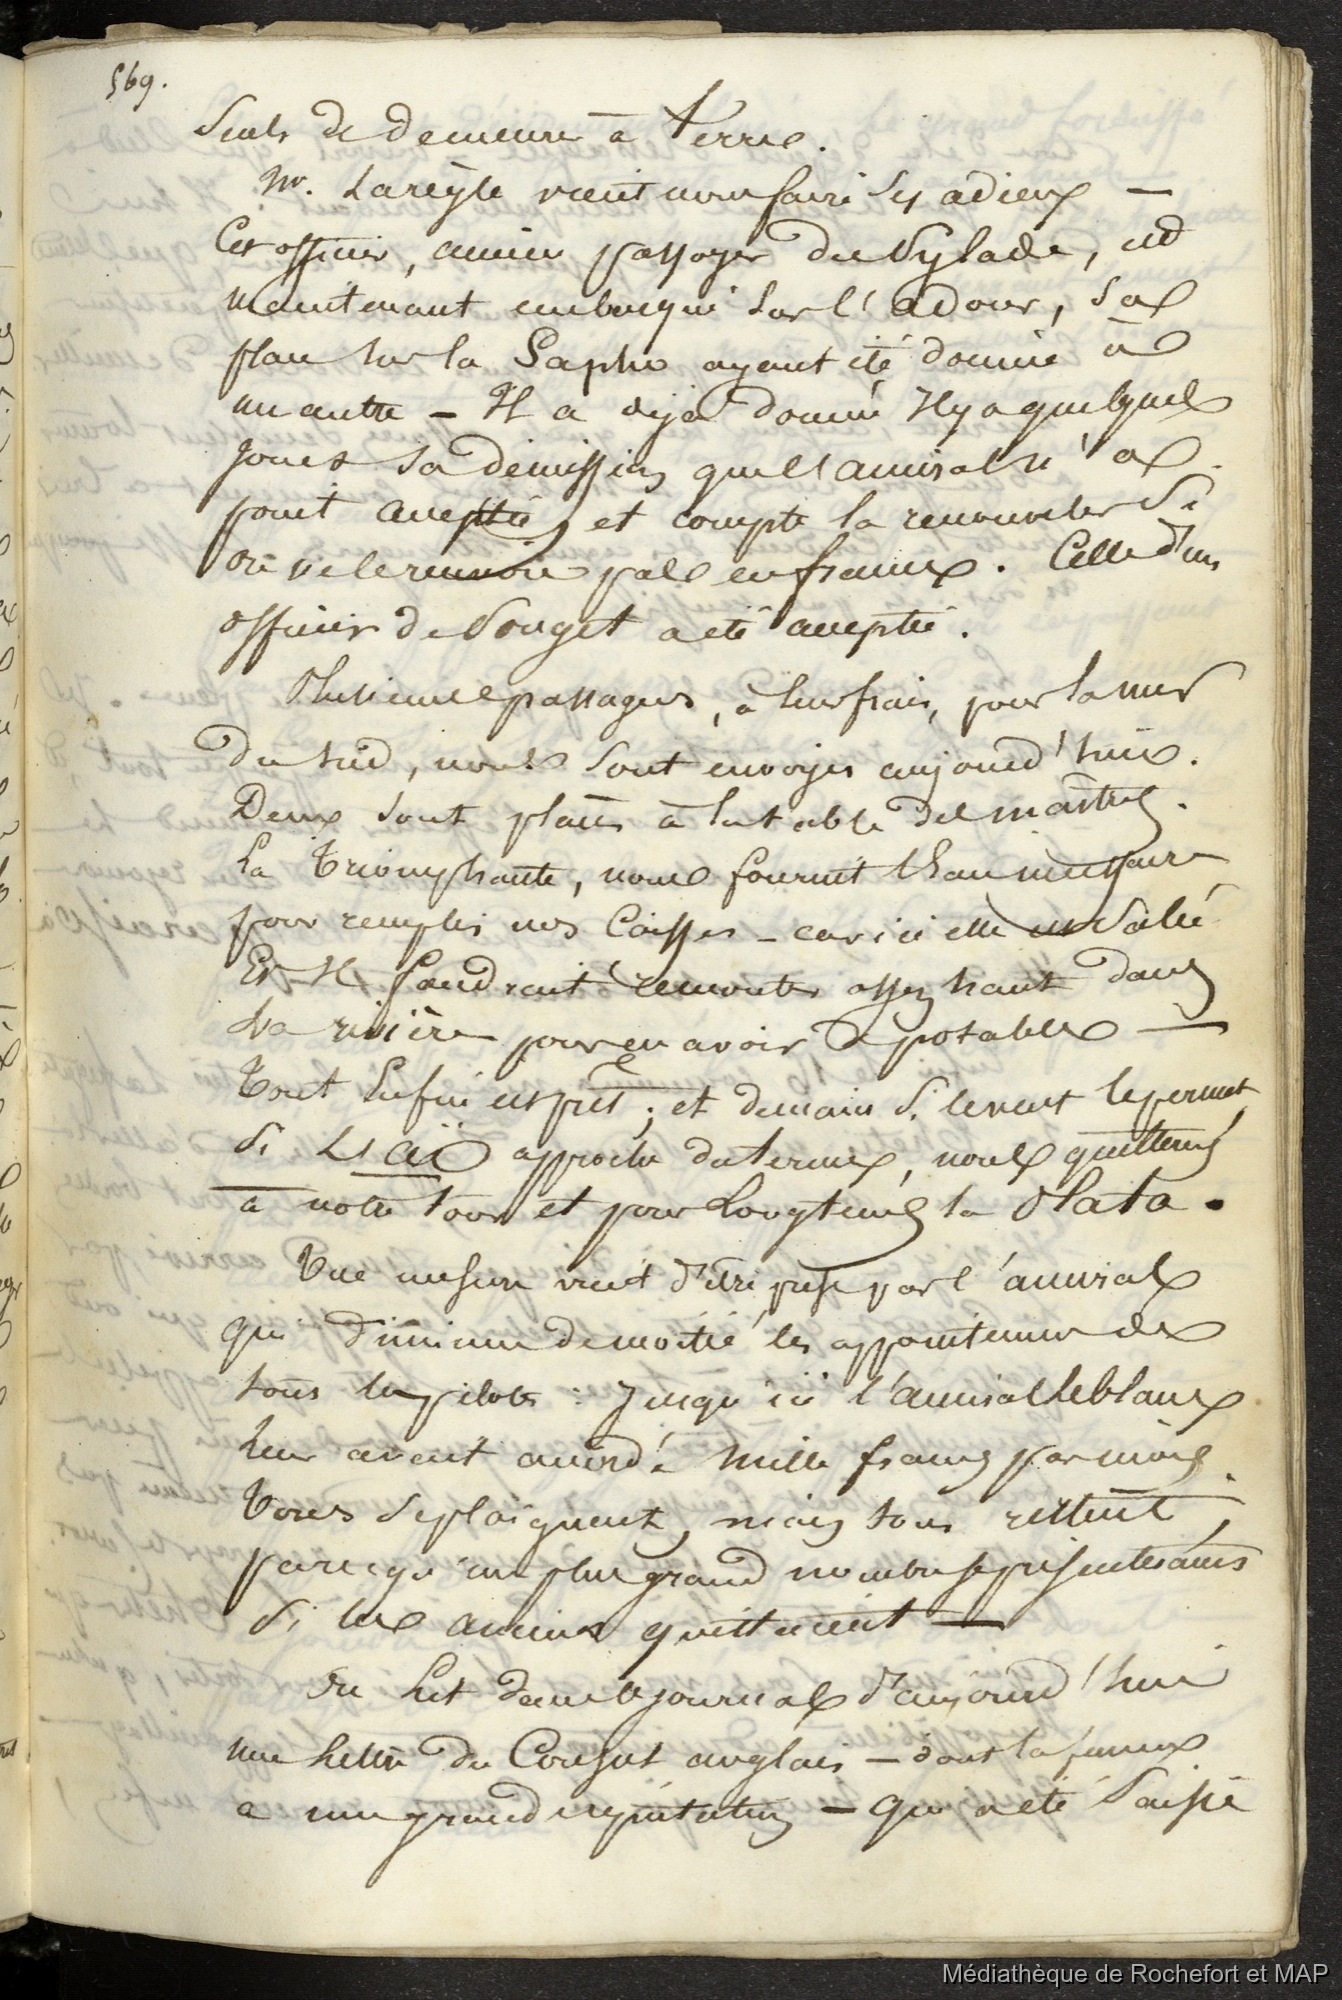 569.
seuls de demeurer à terre.
Mr. Larègle vient nous faire ses adieux —
Cet officier, ancien passager du Pylade, est
maintenant embarqué sur l'adour, sa
place sur la Sapho ayant été donnée à
un autre — Il a déjà donné Il y a quelques
jours sa démission que l'amiral n'a
point acceptée, et compte la renouveler si
on ne le renvoie pas en france. Celle d'un
officier de Vouget a été acceptée.
Plusieurs passagers, à leur frais, pour la mer
du sud, nous sont envoyés aujourd'hui.
Deux sont placés à la table des maîtres.
La Triomphante, nous fournit l'eau nécessaire
pour remplir nos Caisses — car ici elle est salée
Et Il faudrait remonter assez haut dans
La rivière pour en avoir de potable —
Tout Enfin est prêt; et demain si le vent le permet,
si approche du terme, nous quitterons
à notre tour et pour longtems la Plata.
Une mesure vient d'être prise par l'amiral
qui diminue de moitié les appointemens de
tous les pilotes : Jusqu'ici l'amiral Leblanc
leur avait accordé mille francs par mois.
Tous se plaignent, mais tous restent,
parcequ'un plus grand nombre se présenterait
si les anciens quittaient —
On lit dans le journal d'aujourd'hui
une lettre du Consul anglais — dont la femme
a une grande réputation — qui a été saisie
Médiathèque de Rochefort et MAP